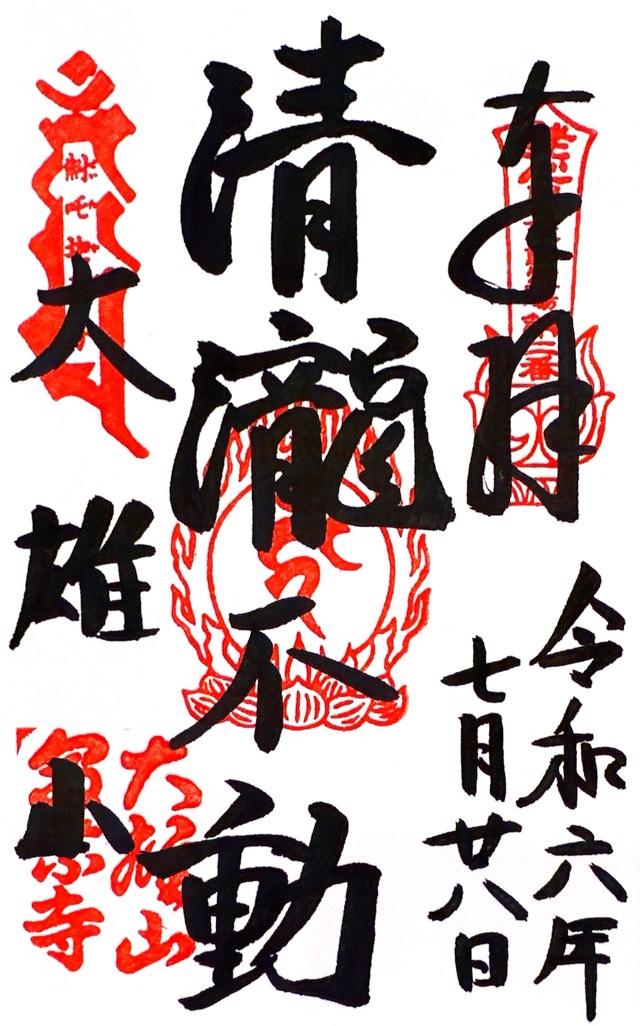 奉拝
令和六年
七月廿八日
清瀧不動
大雄山
大雄山